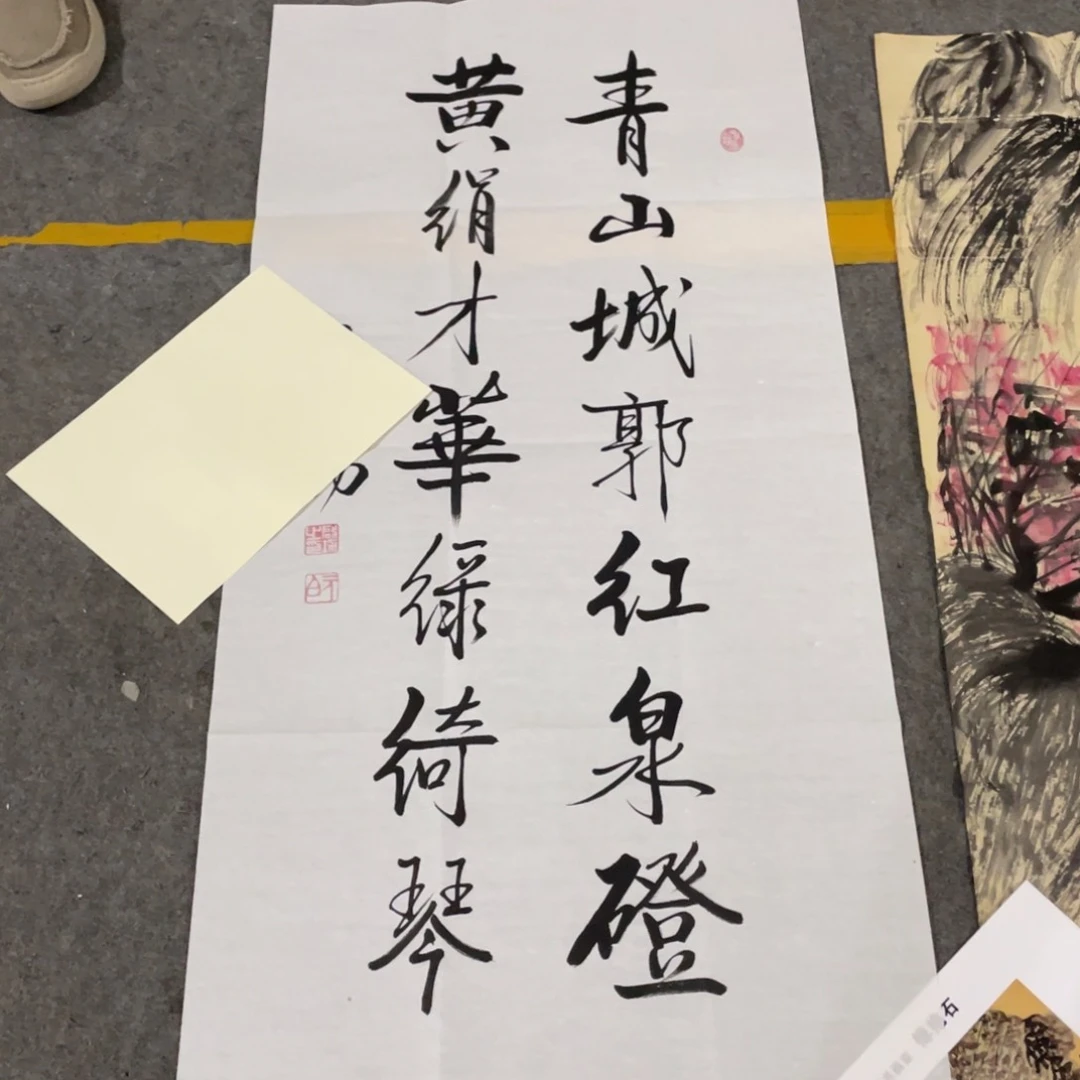 青山城郭红泉磴
黄绢才華緑绮琴
石